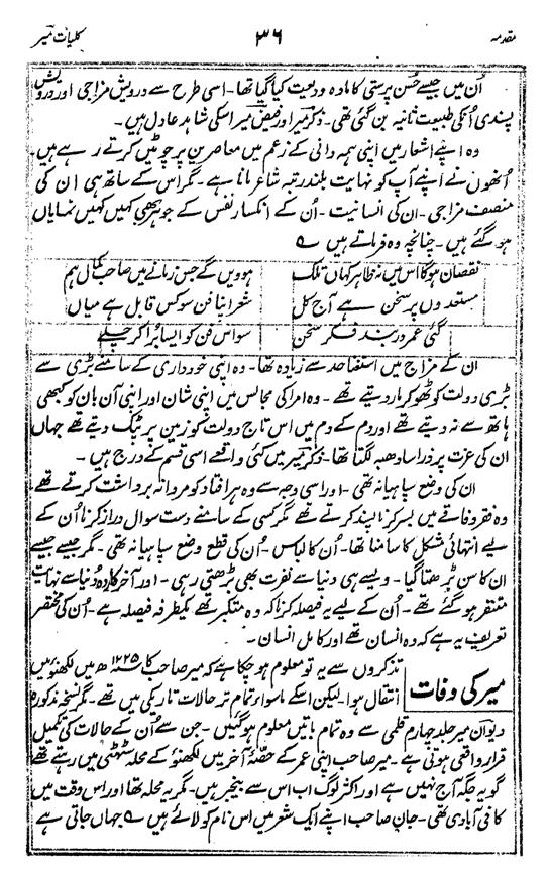 مقدمہ ۳۶ کلیات میر
اُن میں جیسے حُسن پرستی کا مادہ ودیعت کیا گیا تھا۔ اسی طرح سے درویش مزاجی اور درویش
پسندی اُنکی طبیعت ثانیہ بن گئی تھی۔ ذکر میر اور فیض میر اسکی شاہد عادل ہیں۔
وہ اپنے اشعار میں اپنی ہمہ دانی کے زعم میں معاصرین پر چوٹیں کرتے رہے ہیں۔
اُنھوں نے اپنے آپ کو نہایت بلند رتبہ شاعر مانا ہے۔ مگر اس کے ساتھ ہی ان کی
منصف مزاجی۔ ان کی انسانیت۔ اُن کے انکسار نفس کے جوہر بھی کہیں کہیں نمایاں
ہو گئے ہیں۔ چنانچہ وہ فرماتے ہیں ؎
نقصان ہوگا اس میں نہ ظاہر کہاں تلک ہوویں گے جس زمانے میں صاحب کمال ہم
مستعدوں پر سخن ہے آج کل شعر اپنا فن سو کس قابل ہے میاں
گئی عمر در بند فکر سخن سو اس فن کو ایسا بڑا کر چلے
ان کے مزاج میں استغنا حد سے زیادہ تھا۔ وہ اپنی خودداری کے سامنے بڑی سے
بڑی دولت کو ٹھوکر مار دیتے تھے۔ وہ امرا کی مجالس میں اپنی شان اور اپنی آن بان کو کبھی
ہاتھ سے نہ دیتے تھے اور دم کے دم میں اس تاج دولت کو زمین پر پٹک دیتے تھے جہاں
ان کی عزت پر ذرا سا دھبہ لگتا تھا۔ ذکر میر میں کئی واقعے اسی قسم کے درج ہیں۔
ان کی وضع سپاہیانہ تھی۔ اور اسی وجہ سے وہ ہر افتاد کو مردانہ برداشت کرتے تھے
وہ فقر و فاقے میں بسر کرنا پسند کرتے تھے مگر کسی کے سامنے دست سوال دراز کرنا اُن کے
لیے انتہائی مشکل کا سامنا تھا۔ اُن کا لباس۔ اُن کی قطع وضع سپاہیانہ تھی۔ مگر جیسے جیسے
ان کا سن بڑھتا گیا۔ ویسے ہی دنیا سے نفرت بھی بڑھتی رہی۔ اور آخر کار وہ دُنیا سے نہایت
متنفر ہو گئے تھے۔ اُن کے لیے یہ فیصلہ کرنا کہ وہ متکبر تھے یکطرفہ فیصلہ ہے۔ اُن کی مختصر
تعریف یہ ہے کہ وہ انسان تھے اور کامل انسان۔
میر کی وفات
تذکروں سے یہ تو معلوم ہو چکا ہے کہ میر صاحب کا ۱۲۲۵ھ میں لکھنؤ میں
انتقال ہوا۔ لیکن اسکے ماسوا تمام تر حالات تاریکی میں تھے۔ مگر نسخہ مذکورہ
دیوان میر جلد چہارم قلمی سے وہ تمام باتیں معلوم ہو گئیں۔ جن سے اُن کے حالات کی تکمیل
قرار واقعی ہوتی ہے۔ میر صاحب اپنی عمر کے حصّۂ آخر میں لکھنؤ کے محلہ سٹہٹی میں رہتے تھے
گو یہ جگہ آج نہیں ہے اور اکثر لوگ اب اس سے بیخبر ہیں۔ مگر یہ محلہ تھا اور اس وقت میں
کافی آبادی تھی۔ جان صاحب اپنے ایک شعر میں اس نام کو لائے ہیں ؎ جہاں جاتی ہے